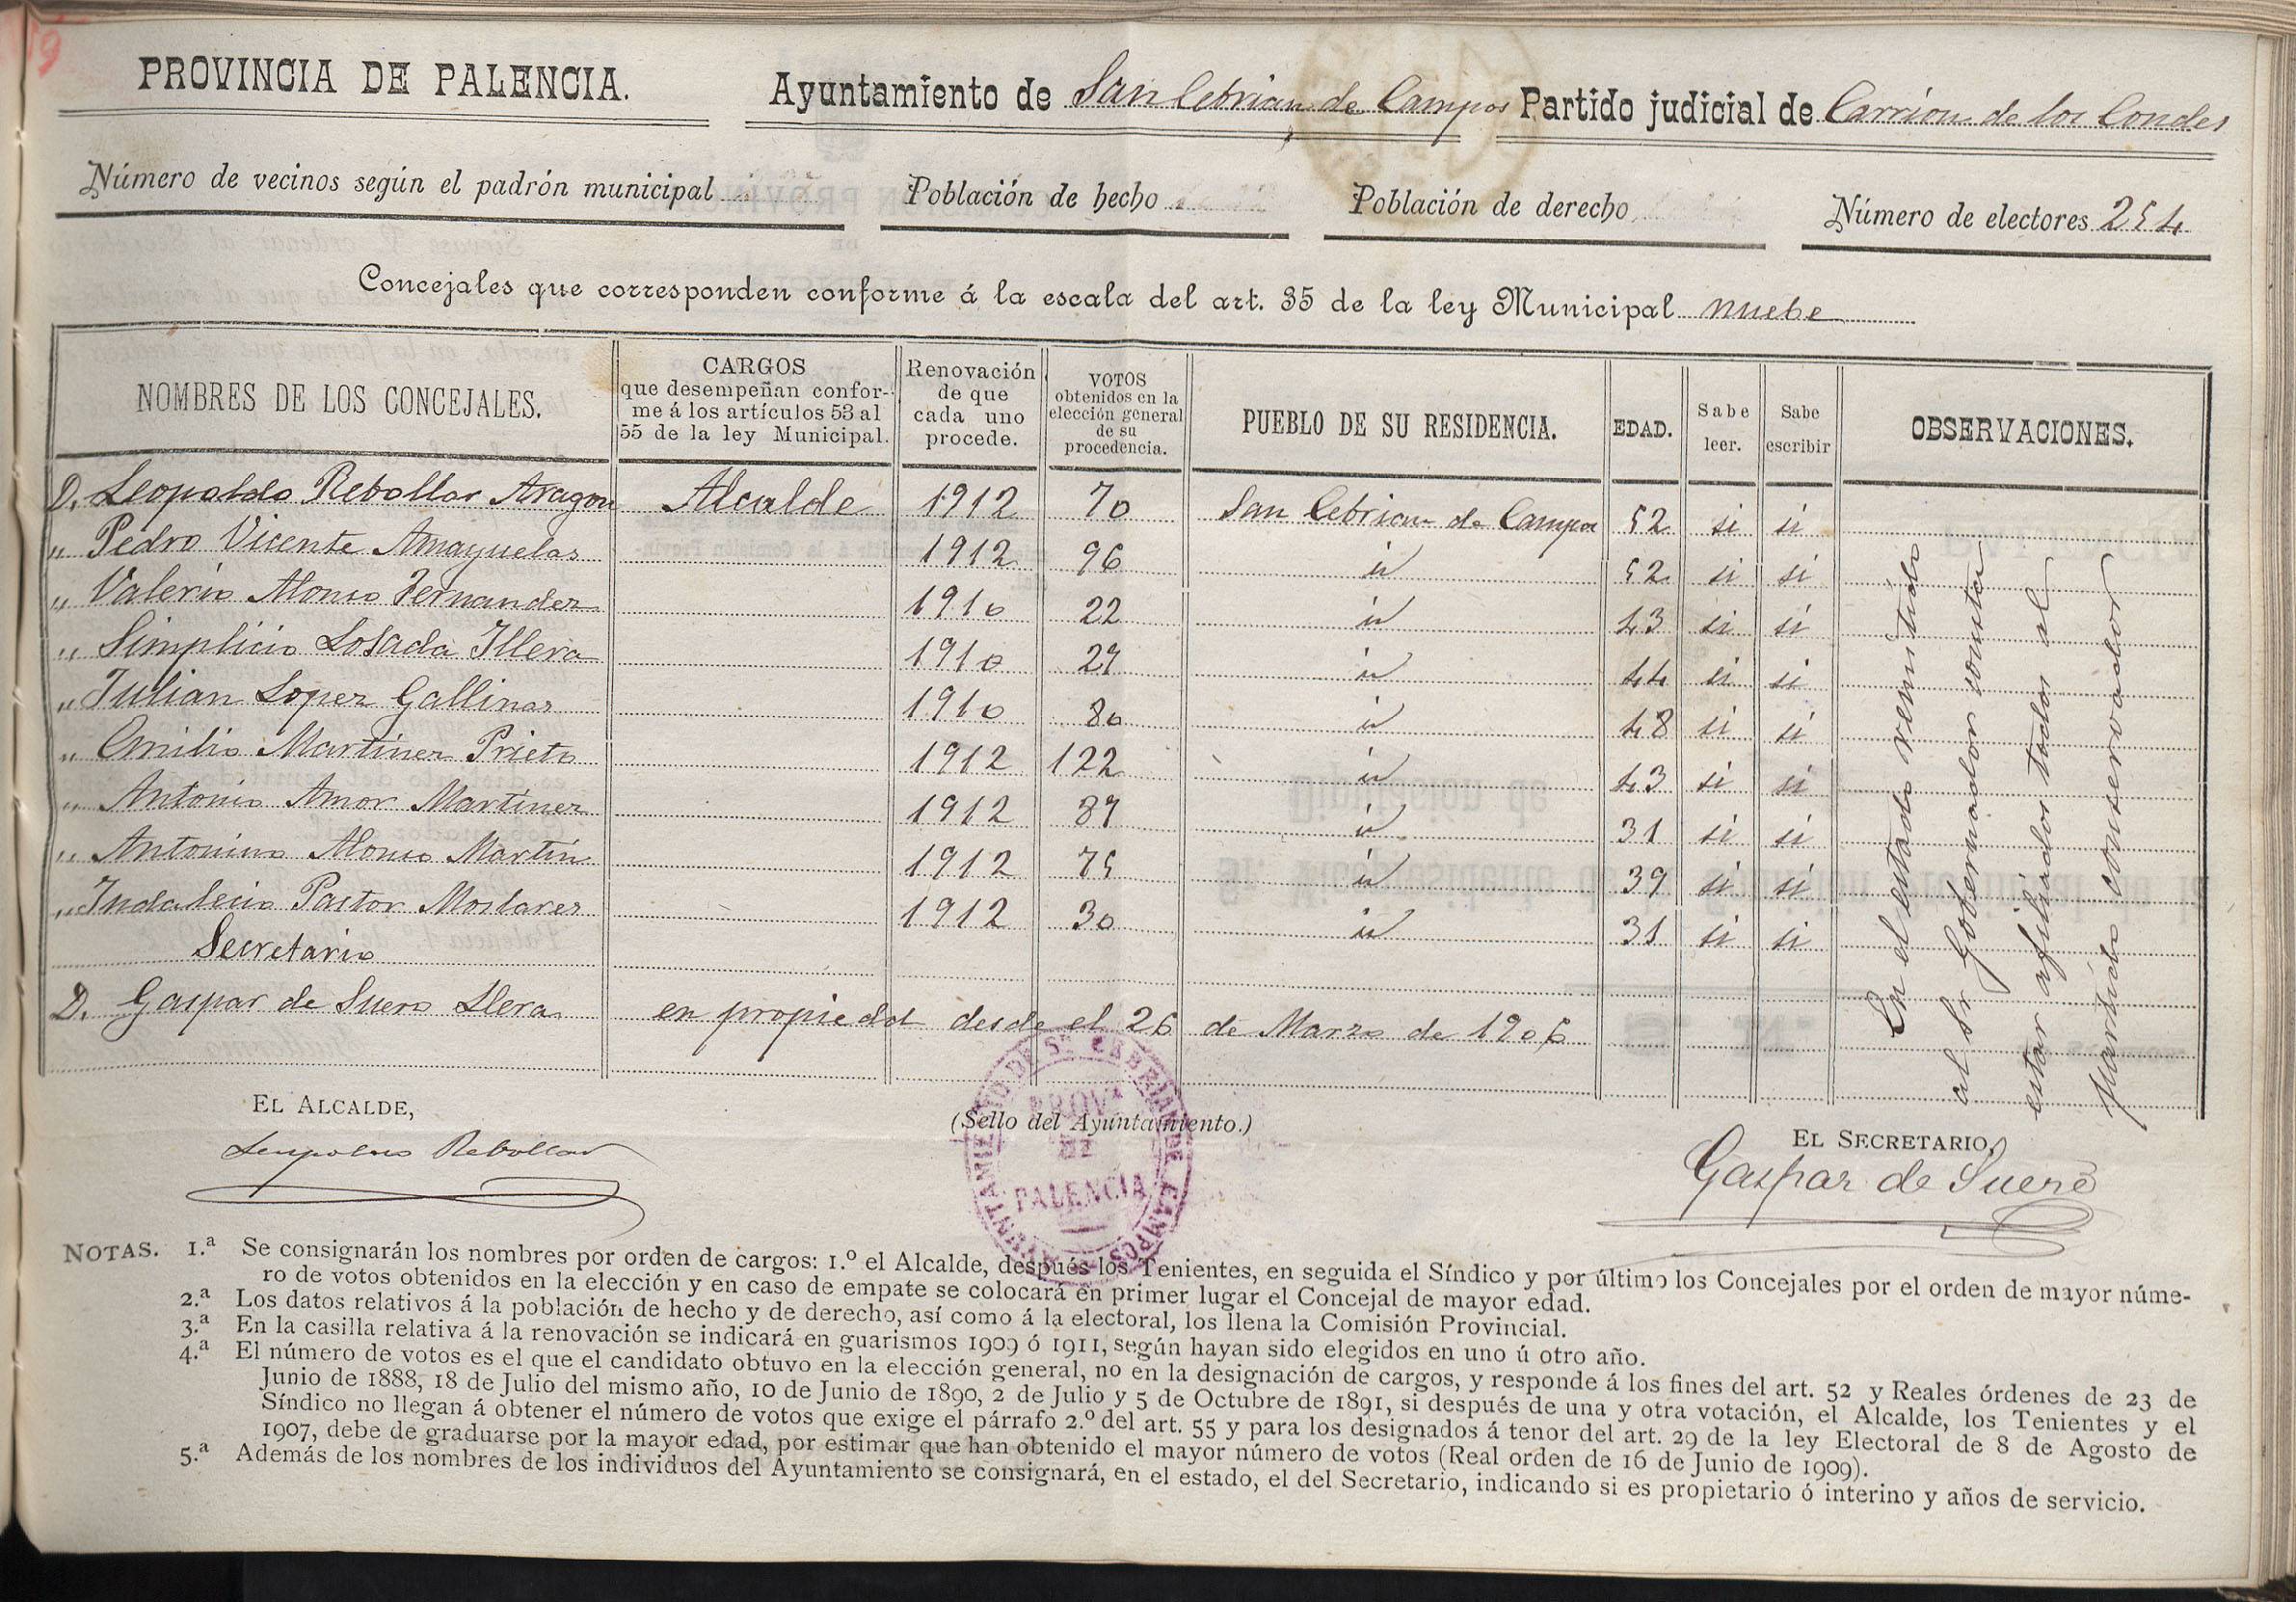 PROVINCIA DE PALENCIA. Ayuntamiento de San Cebrian de Campos Partido judicial de Carrion de los Condes
Número de vecinos según el padrón municipal Población de hecho Población de derecho Número de electores 254
Concejales que corresponden conforme á la escala del art. 35 de la ley Municipal nuebe
NOMBRES DE LOS CONCEJALES.
CARGOS
que desempeñan confor-
me á los artículos 53 al
55 de la ley Municipal.
Renovación
de que
cada uno
procede.
VOTOS
obtenidos en la
elección general
de su
procedencia.
PUEBLO DE SU RESIDENCIA.
EDAD.
Sabe
leer.
Sabe
escribir
OBSERVACIONES.
D. Leopoldo Rebollar Aragon Alcalde 1912 70 San Cebrian de Campos 52 si si
" Pedro Vicente Amayuelas 1912 96 id 52 si si
" Valerio Alonso Fernandez 1910 22 id 43 si si
" Simplicio Losada Illera 1910 29 id 44 si si
" Julian Lopez Gallinas 1910 80 id 48 si si
" Emilio Martinez Prieto 1912 122 id 43 si si
" Antonio Amor Martinez 1912 89 id 31 si si
" Antonino Alonso Martin 1912 75 id 39 si si
" Indalecio Pastor Mostares 1912 30 id 31 si si
Secretario
D. Gaspar de Suero Llera en propiedad desde el 26 de Marzo de 1906
En el estado remitido
al Sr Gobernador consta
estar afiliados todos al
partido conservador
EL ALCALDE,
Leopoldo Rebollar
(Sello del Ayuntamiento.)
AYUNTAMIENTO DE Sn CEBRIAN DE CAMPOS
PROVa
DE
PALENCIA
EL SECRETARIO,
Gaspar de Suero
NOTAS. 1.ª Se consignarán los nombres por orden de cargos: 1.º el Alcalde, después los Tenientes, en seguida el Síndico y por último los Concejales por el orden de mayor núme-
ro de votos obtenidos en la elección y en caso de empate se colocará en primer lugar el Concejal de mayor edad.
2.ª Los datos relativos á la población de hecho y de derecho, así como á la electoral, los llena la Comisión Provincial.
3.ª En la casilla relativa á la renovación se indicará en guarismos 1909 ó 1911, según hayan sido elegidos en uno ú otro año.
4.ª El número de votos es el que el candidato obtuvo en la elección general, no en la designación de cargos, y responde á los fines del art. 52 y Reales órdenes de 23 de
Junio de 1888, 18 de Julio del mismo año, 10 de Junio de 1890, 2 de Julio y 5 de Octubre de 1891, si después de una y otra votación, el Alcalde, los Tenientes y el
Síndico no llegan á obtener el número de votos que exige el párrafo 2.º del art. 55 y para los designados á tenor del art. 29 de la ley Electoral de 8 de Agosto de
1907, debe de graduarse por la mayor edad, por estimar que han obtenido el mayor número de votos (Real orden de 16 de Junio de 1909).
5.ª Además de los nombres de los individuos del Ayuntamiento se consignará, en el estado, el del Secretario, indicando si es propietario ó interino y años de servicio.